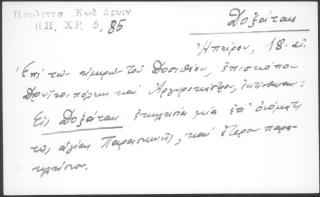 Πουλίτσα Κωδ Δρυιν
ΗΠ, ΧΡ, 5, 85
Δοξάτες
Ἠπείρου, 18. αἰ.
"Ἐπὶ τῶν ἡμερῶν τοῦ Δοσιθέου, ἐπισκόπου
Δρυϊνουπόλεως καὶ Ἀργυροκάστρου, ἐκτίσθησαν:
Εἰς Δοξάτες ἐκκλησία μία ἐπ' ὀνόματι
τῆς ἁγίας Παρασκευῆς, καὶ ἕτερον παρε-
κκλήσιον.